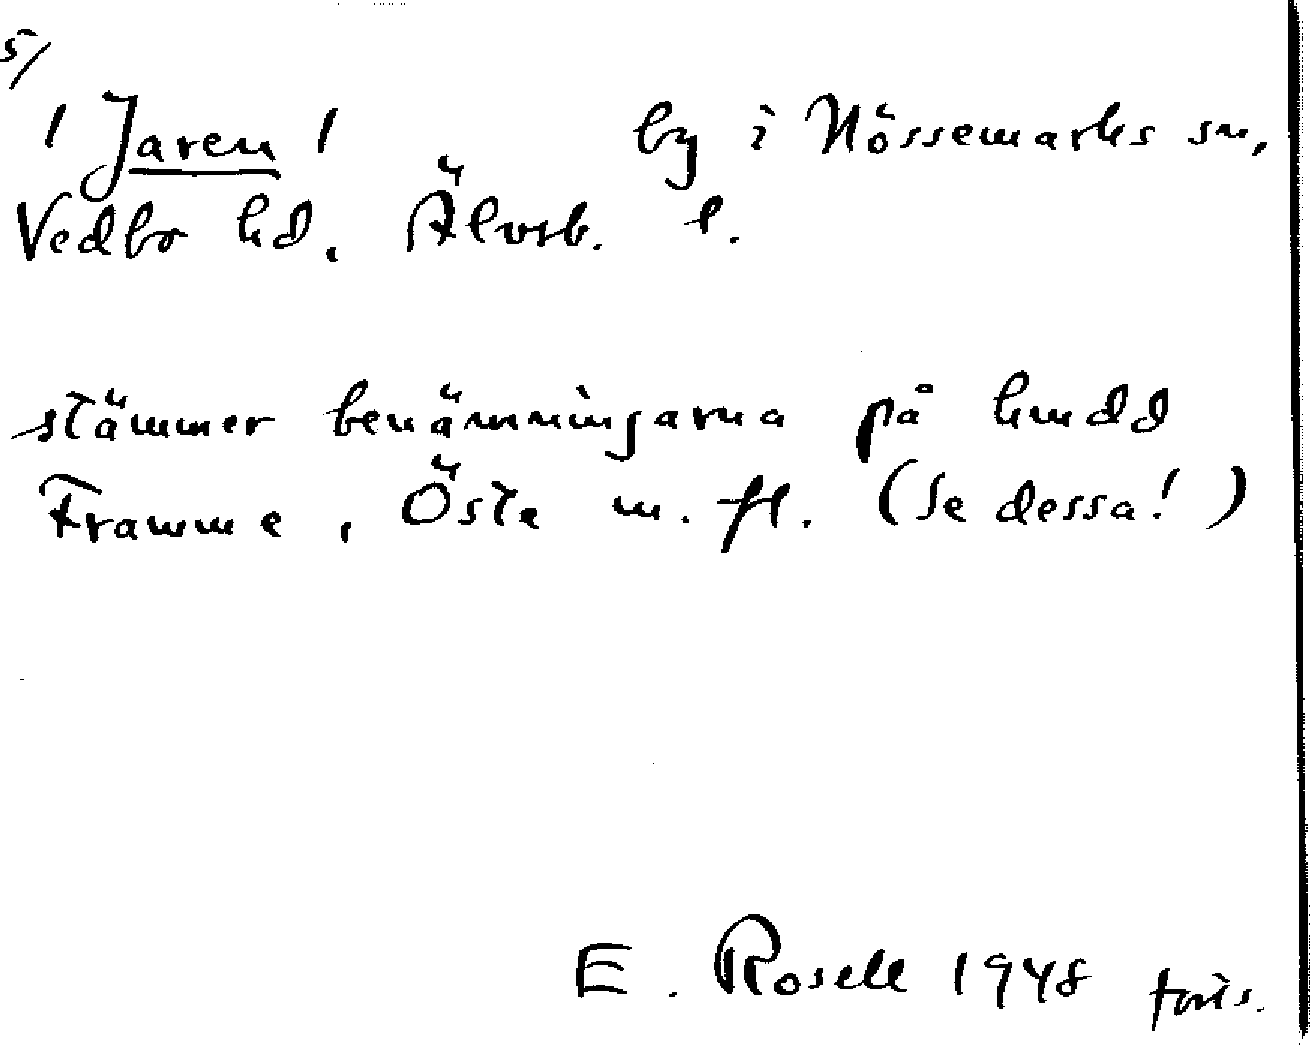 5/
/ Jaren / by i Nössemarks sn,
Vedbo hd. Älvsb. l.
stämmer benämningarna på hmdd
Framme, Östa m. fl. (Se dessa!)
E. Rosell 1948 forts.